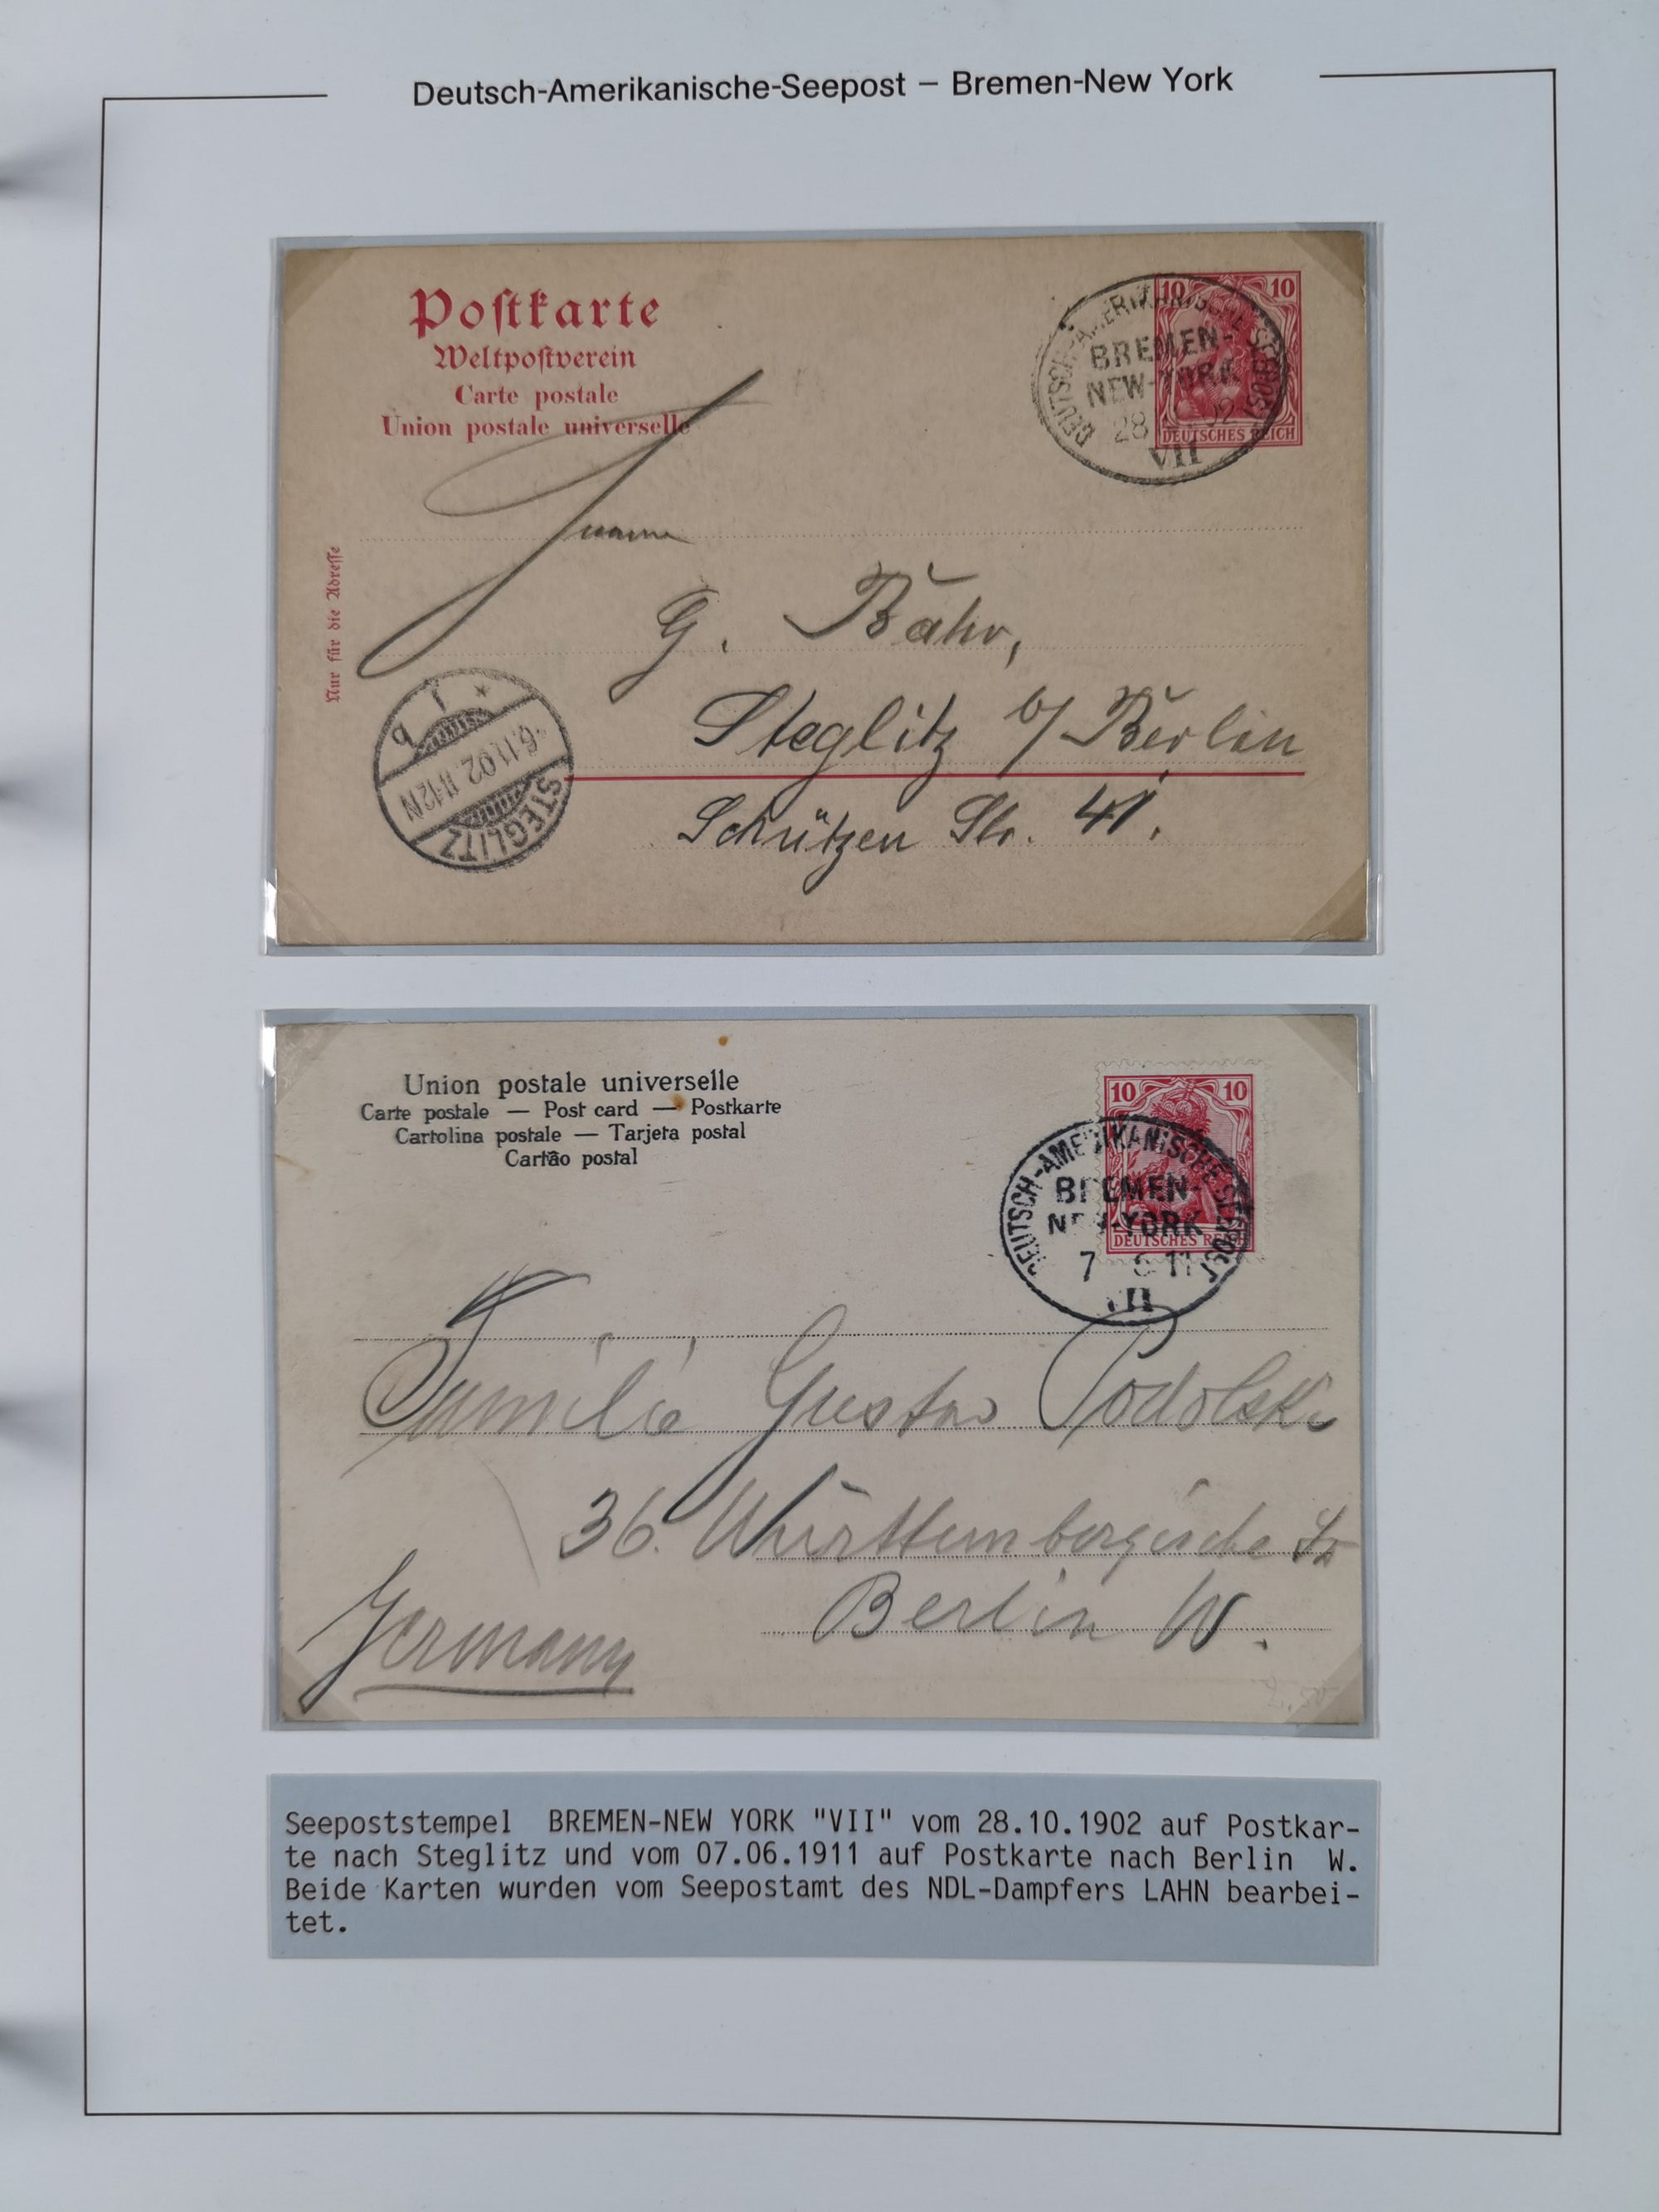 Deutsch-Amerikanische-Seepost – Bremen-New York
Postkarte
Weltpostverein
Carte postale
Union postale universelle
Nur für die Adresse
10 10
DEUTSCHES REICH
DEUTSCH-AMERIKANISCHE SEEPOST
BREMEN-
NEW-YORK
28 02
VII
G. Bähr,
Steglitz b/ Berlin
Schützen Str. 41.
STEGLITZ
-6.11.02.11-12N
Union postale universelle
Carte postale — Post card — Postkarte
Cartolina postale — Tarjeta postal
Cartão postal
10 10
DEUTSCHES REICH
DEUTSCH-AMERIKANISCHE SEEPOST
BREMEN-
NEW-YORK
7 6 11
VII
Familie Gustav Podolski
36. Württembergische Str
Berlin W.
Germany
Seepoststempel BREMEN-NEW YORK "VII" vom 28.10.1902 auf Postkar-
te nach Steglitz und vom 07.06.1911 auf Postkarte nach Berlin W.
Beide Karten wurden vom Seepostamt des NDL-Dampfers LAHN bearbei-
tet.